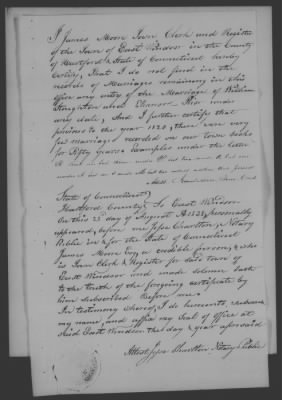 I James Moore Town Clerk and Register
of the Town of East Windsor in the County
of Hartford & State of Connecticut hereby
Certify, That I do not find in the
records of Marriages remaining in this
Office any entry of the Marriage of William
Stoughton and Eleanor his under
any date, And I further certify that
previous to the year 1820, there are very
few marriages recorded on our town books
for Fifty Years. Examples under the letter
Attest James Moore Town Clerk
State of Connecticut
Hartford County, Ss East Windsor
On this 23d day of August A 1838, Personally
appeared, before me Jesse Charlton, a Notary
Public in & for the State of Connecticut
James Moore Esq. a credible person, & who
is Town Clerk & Register for said town of
East Windsor and made solemn oath
to the truth of the foregoing certificate by
him subscribed Before me.
In testimony whereof, I do hereunto, subscribe
my name, and affix my Seal of office at
said East Windsor the day & year aforesaid
Attest Jesse Charlton Notary Public